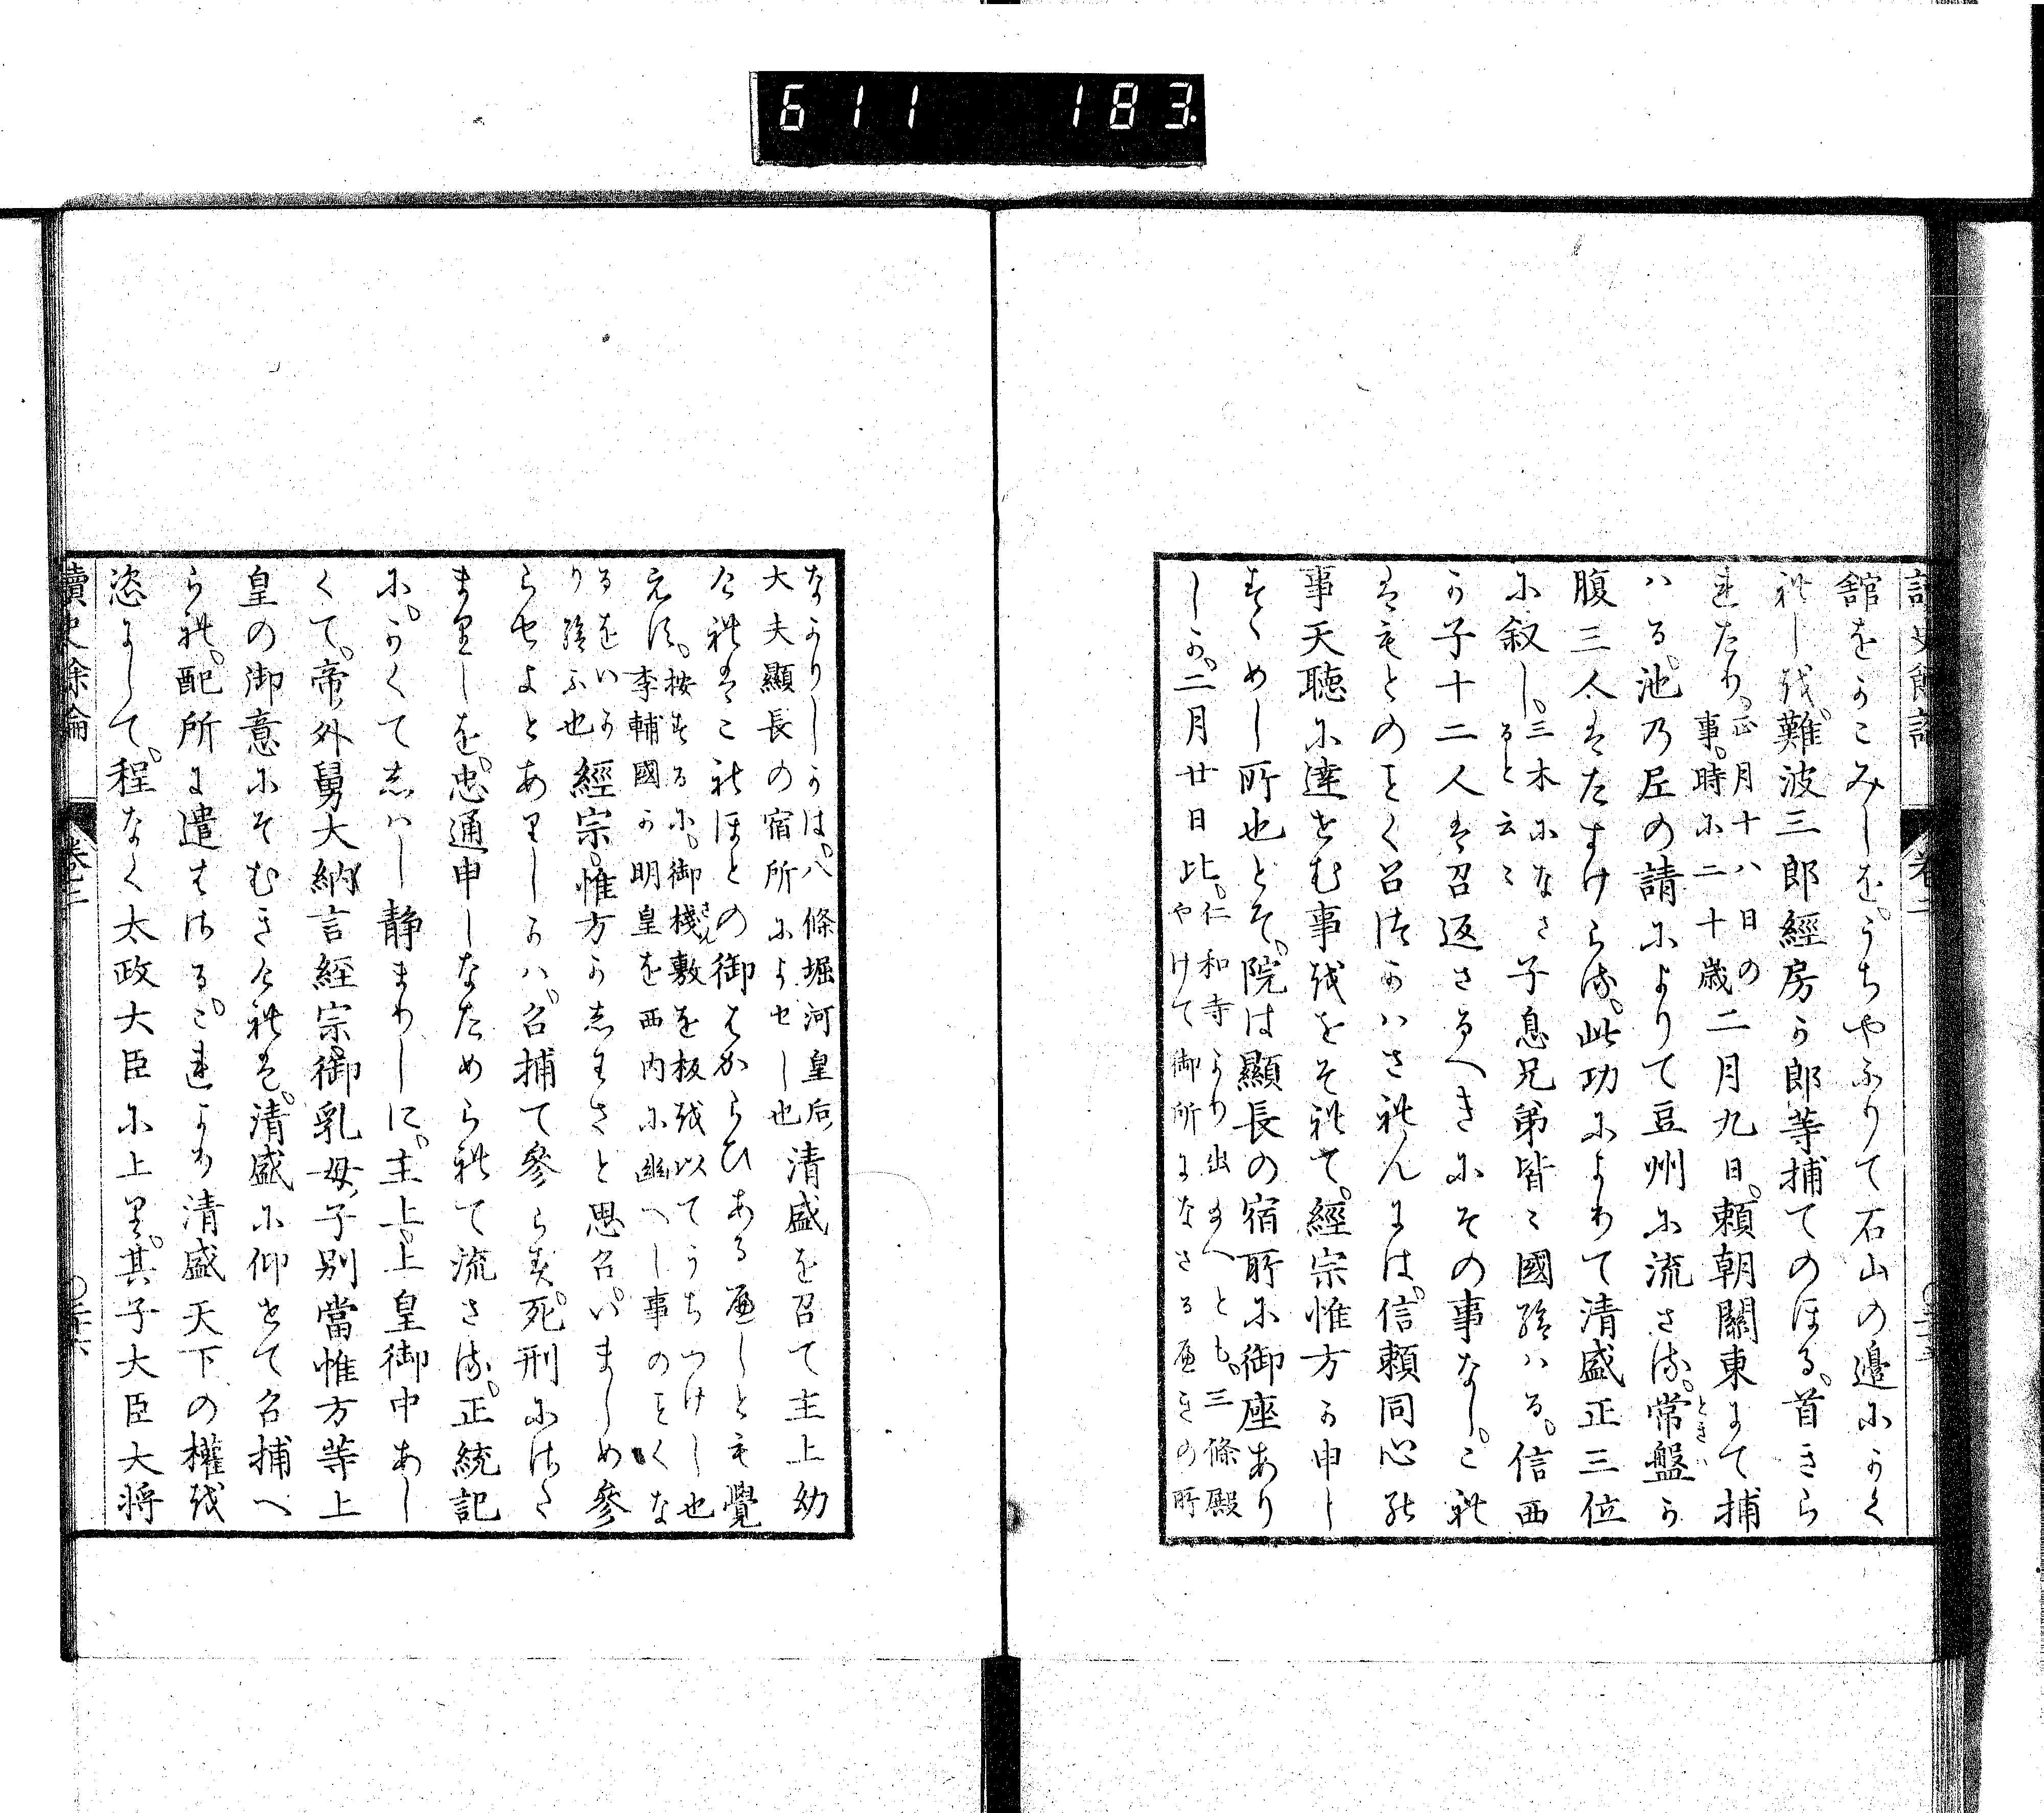 611 183.
讀史餘論 卷二 〇三十五
舘をかこみしを。うちやふりて石山の邊にかく
れしを。難波三郎經房か郎等捕てのほる。首きら
れたり。正月十八日の
事。時に二十歳
二月九日。頼朝關東にて捕
ハる。池乃尼の請によりて豆州に流さる。常盤ときハか
腹三人はたすけらる。此功によりて清盛正三位
に叙し。三木になさ
ると云々
子息兄弟皆々國給ハる。信西
か子十二人は召返さるへきにその事なし。これ
はもとのことく召つかハされんには。信頼同心の
事天聴に達せむ事をおそれて。經宗惟方か申し
すゝめし所也とそ。院は顯長の宿所に御座あり
しか。二月廿日比。仁和寺より出給へとも。三條殿
やけて御所になさるへきの所
なかりしかは。八條堀河皇后
大夫顯長の宿所によせし也
清盛を召て主上幼
けれはこれほとの御はからひあるへしとも覺
えす。按するに。御棧さん敷を板を以てうちつけし也
李輔國か明皇を西内に幽へし事のことくな
るをいか
り給ふ也
經宗。惟方かしわさと思召。いましめ參
らせよとありしかハ。召捕て參らす。死刑にさた
まりしを。忠通申しなためられて流さる。正統記
に。かくてしハし静まりしに。主上。上皇御中あし
くて。帝ノ外舅大納言経宗。御乳母ノ子別當惟方等上
皇の御意にそむきけれは。清盛に仰せて召捕へ
られ。配所に遣はさる。これより清盛天下の權を
恣にして。程なく太政大臣に上り。其子大臣大将
讀史餘論 卷二 〇三十六